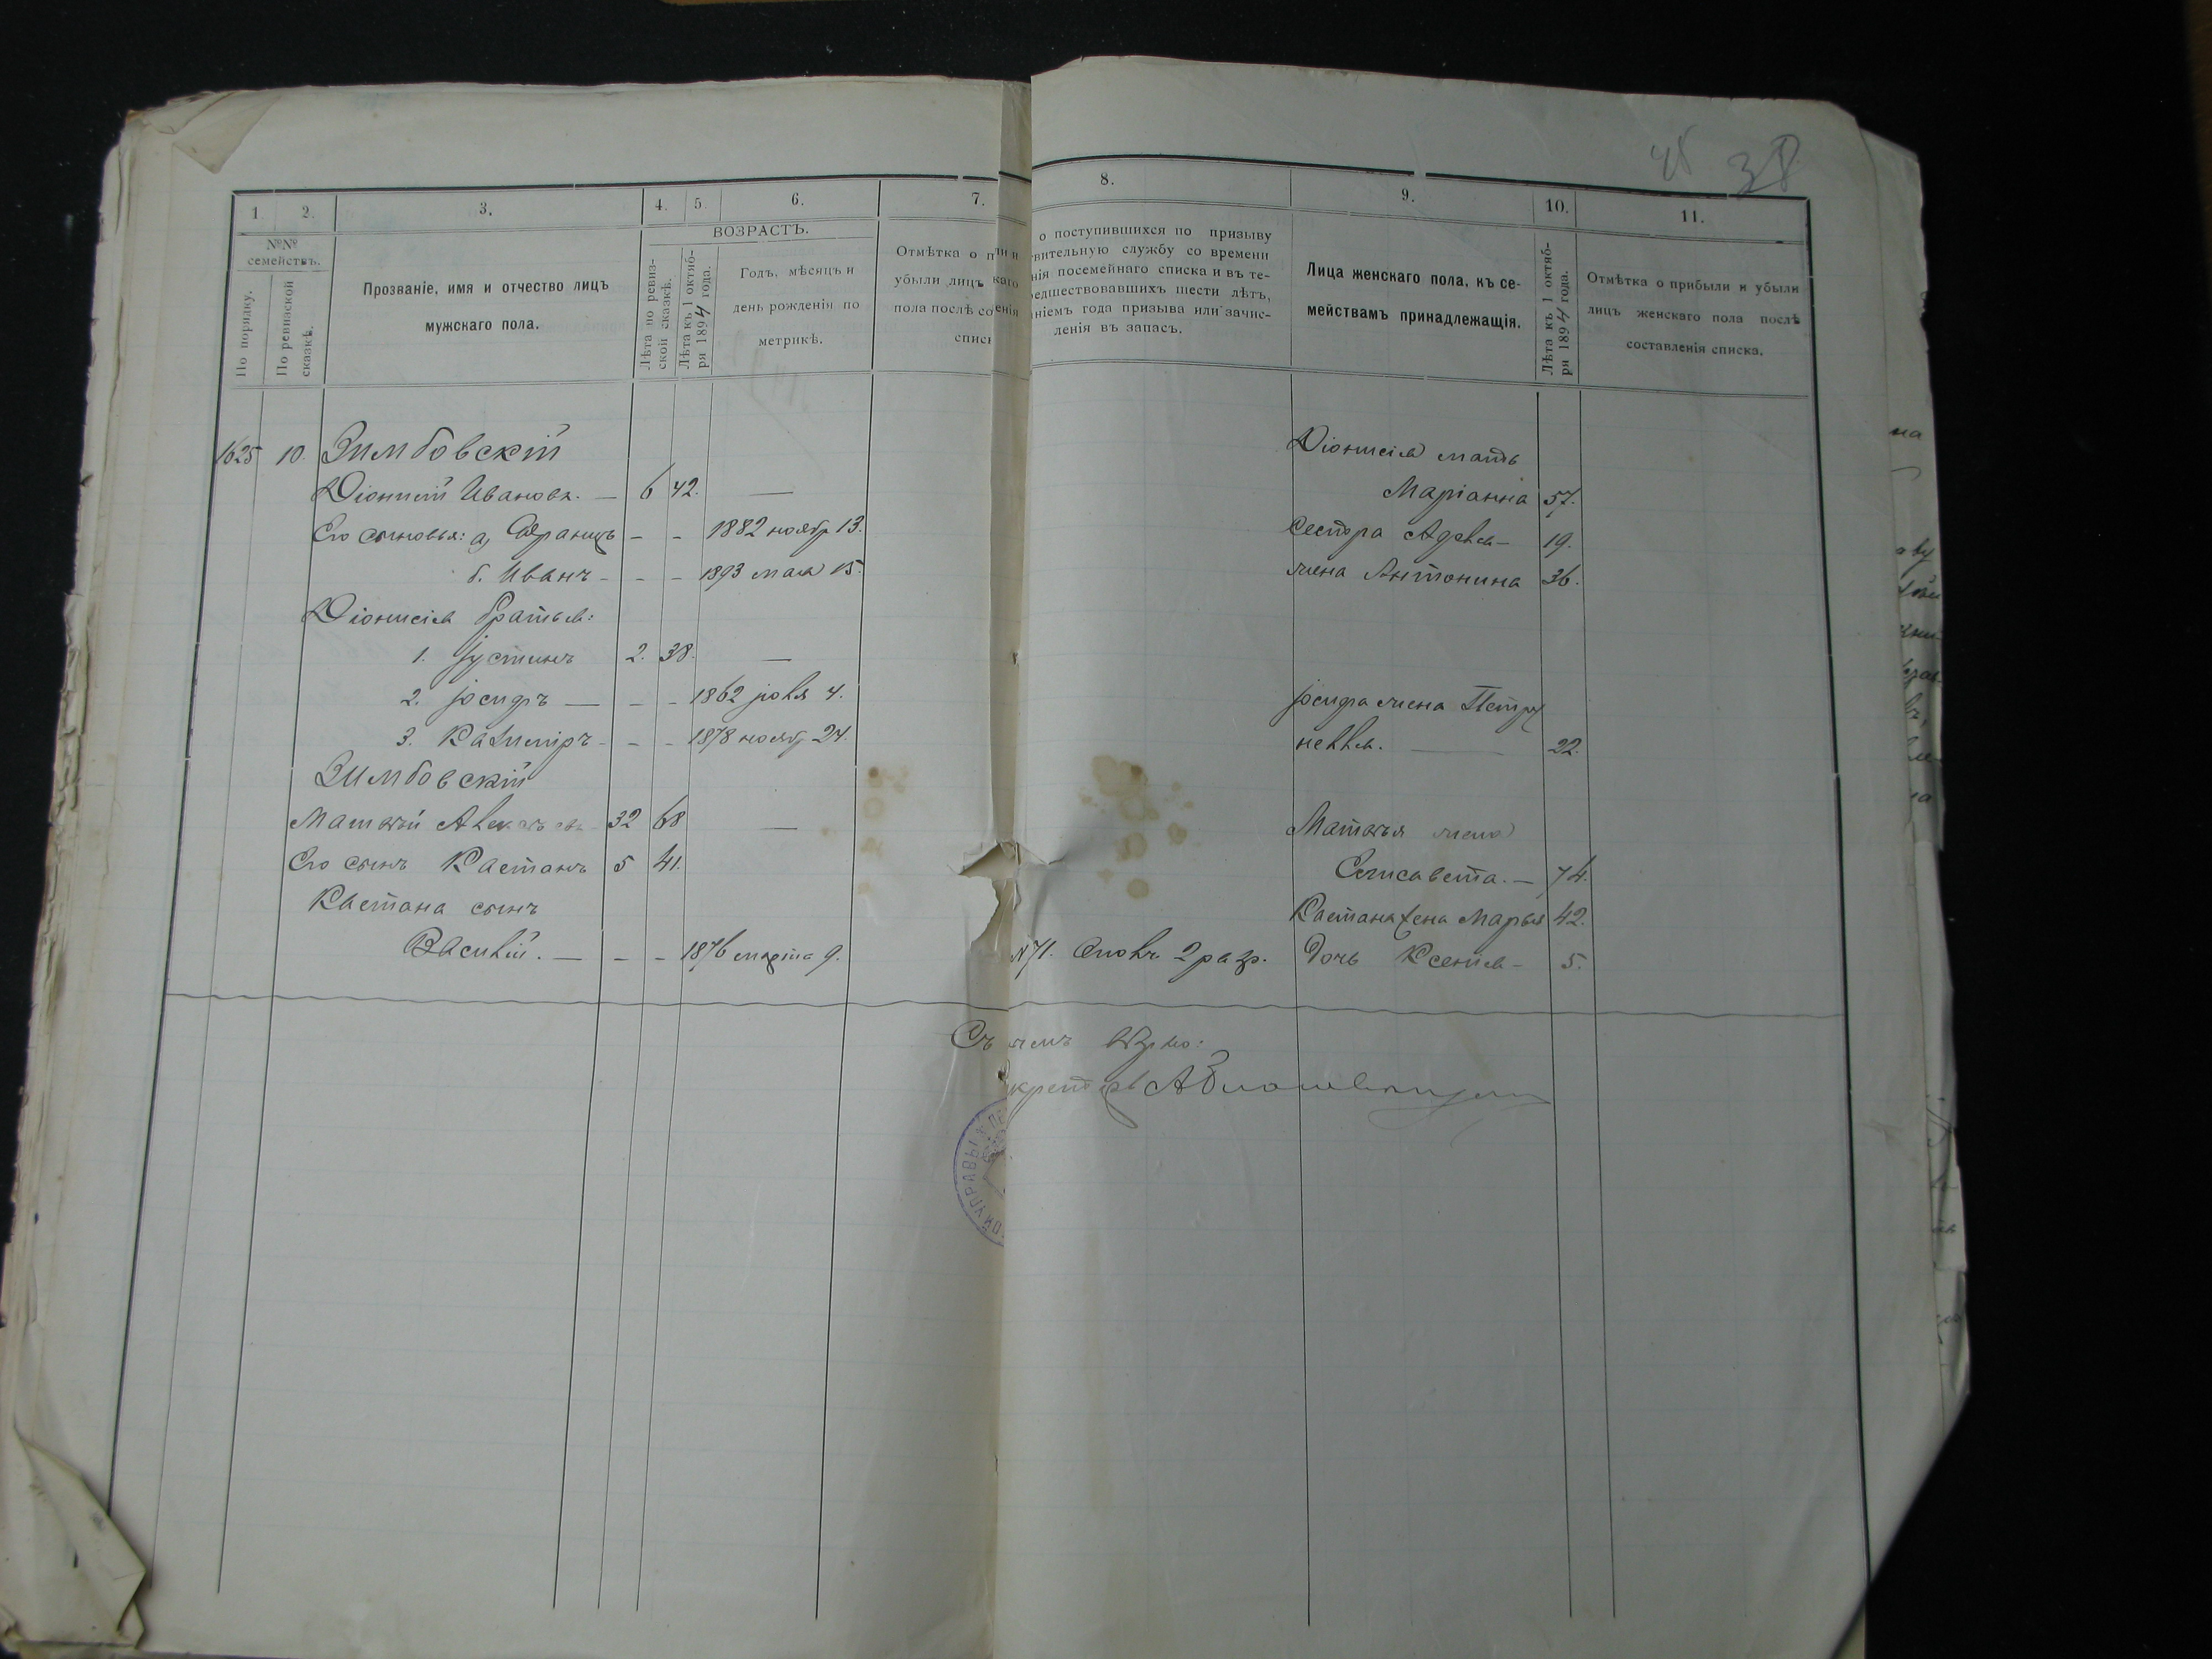 38
1. 2. 3. 4. 5. 6. 7. 8. 9. 10. 11.
№№ семействъ.
По порядку.
По ревизской сказкѣ.
Прозваніе, имя и отчество лицъ
мужскаго пола.
ВОЗРАСТЪ.
Лѣта по ревиз-
ской сказкѣ.
Лѣта къ 1 октяб-
ря 1894 года.
Годъ, мѣсяцъ и
день рожденія по
метрикѣ.
Отмѣтка о п
убыли лицъ
пола послѣ со
списк
ли и
каго
енія
о поступившихся по призыву
вительную службу со времени
нія посемейнаго списка и въ те-
редшествовавшихъ шести лѣтъ,
ніемъ года призыва или зачис-
ленія въ запасъ.
Лица женскаго пола, къ се-
мействамъ принадлежащія.
Лѣта къ 1 октяб-
ря 1894 года.
Отмѣтка о прибыли и убыли
лицъ женскаго пола послѣ
составленія списка.
1625 10. Зимбовскій Діонисія мать
Діонисій Ивановъ. — 6 42. — Маріанна 57.
Его сыновья: а, Францъ - - 1882 ноябр 13. Сестра Аделя — 19.
б. Иванъ - - - 1893 мая 15. жена Антонина 36.
Діонисія братья:
1. Іустинъ 2. 38. —
2. Іосифъ — - - 1862 іюля 4. Іосифа жена Петру
3. Казимиръ - - - 1878 ноябр 24. нелля. — 22.
Зимбовскій
Матвѣй 32 68 — Матвѣя жена
Его сынъ Каетанъ 5 41. Елисавета. — 74.
Каетана сынъ Каетана жена Марья 42.
Василій. — - - 1876 марта 9. №71. Ополч. 2 разр. Дочь Ксенія — 5.
Съ вѣрно: